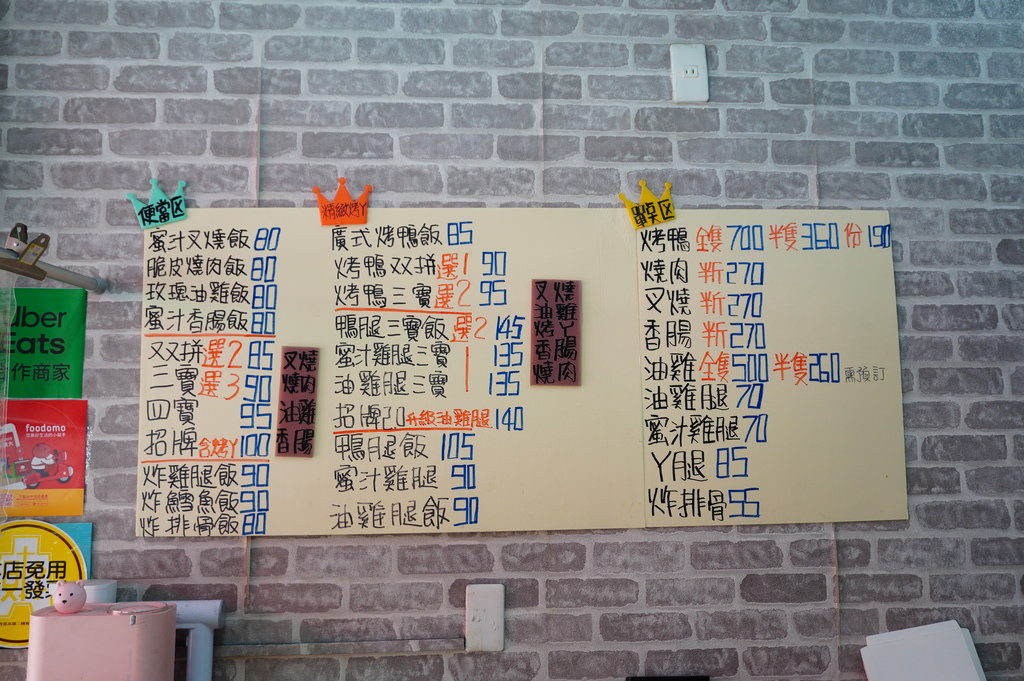 便當区
蜜汁叉燒飯 80
脆皮燒肉飯 80
玫瑰油雞飯 80
蜜汁香腸飯 80
双拼選2 85
三寶選3 90
四寶 95
招牌含烤丫100
炸雞腿飯 90
炸鱈魚飯 90
炸排骨飯 80
叉燒
燒肉
油雞
香腸
精緻烤丫
廣式烤鴨飯 85
烤鴨双拼選1 90
烤鴨三寶選2 95
鴨腿三寶飯選2 145
蜜汁雞腿三寶 1 135
油雞腿三寶 1 135
招牌2.0升級油雞腿 140
鴨腿飯 105
蜜汁雞腿 90
油雞腿飯 90
叉燒
油雞
烤丫
香腸
燒肉
單点区
烤鴨 全隻 700 半隻 360 份 190
燒肉 半斤 270
叉燒 半斤 270
香腸 半斤 270
油雞 全隻500 半隻260 需預訂
油雞腿 70
蜜汁雞腿 70
丫腿 85
炸排骨 55
Uber
Eats
合作商家
foodomo
店免用
一發票